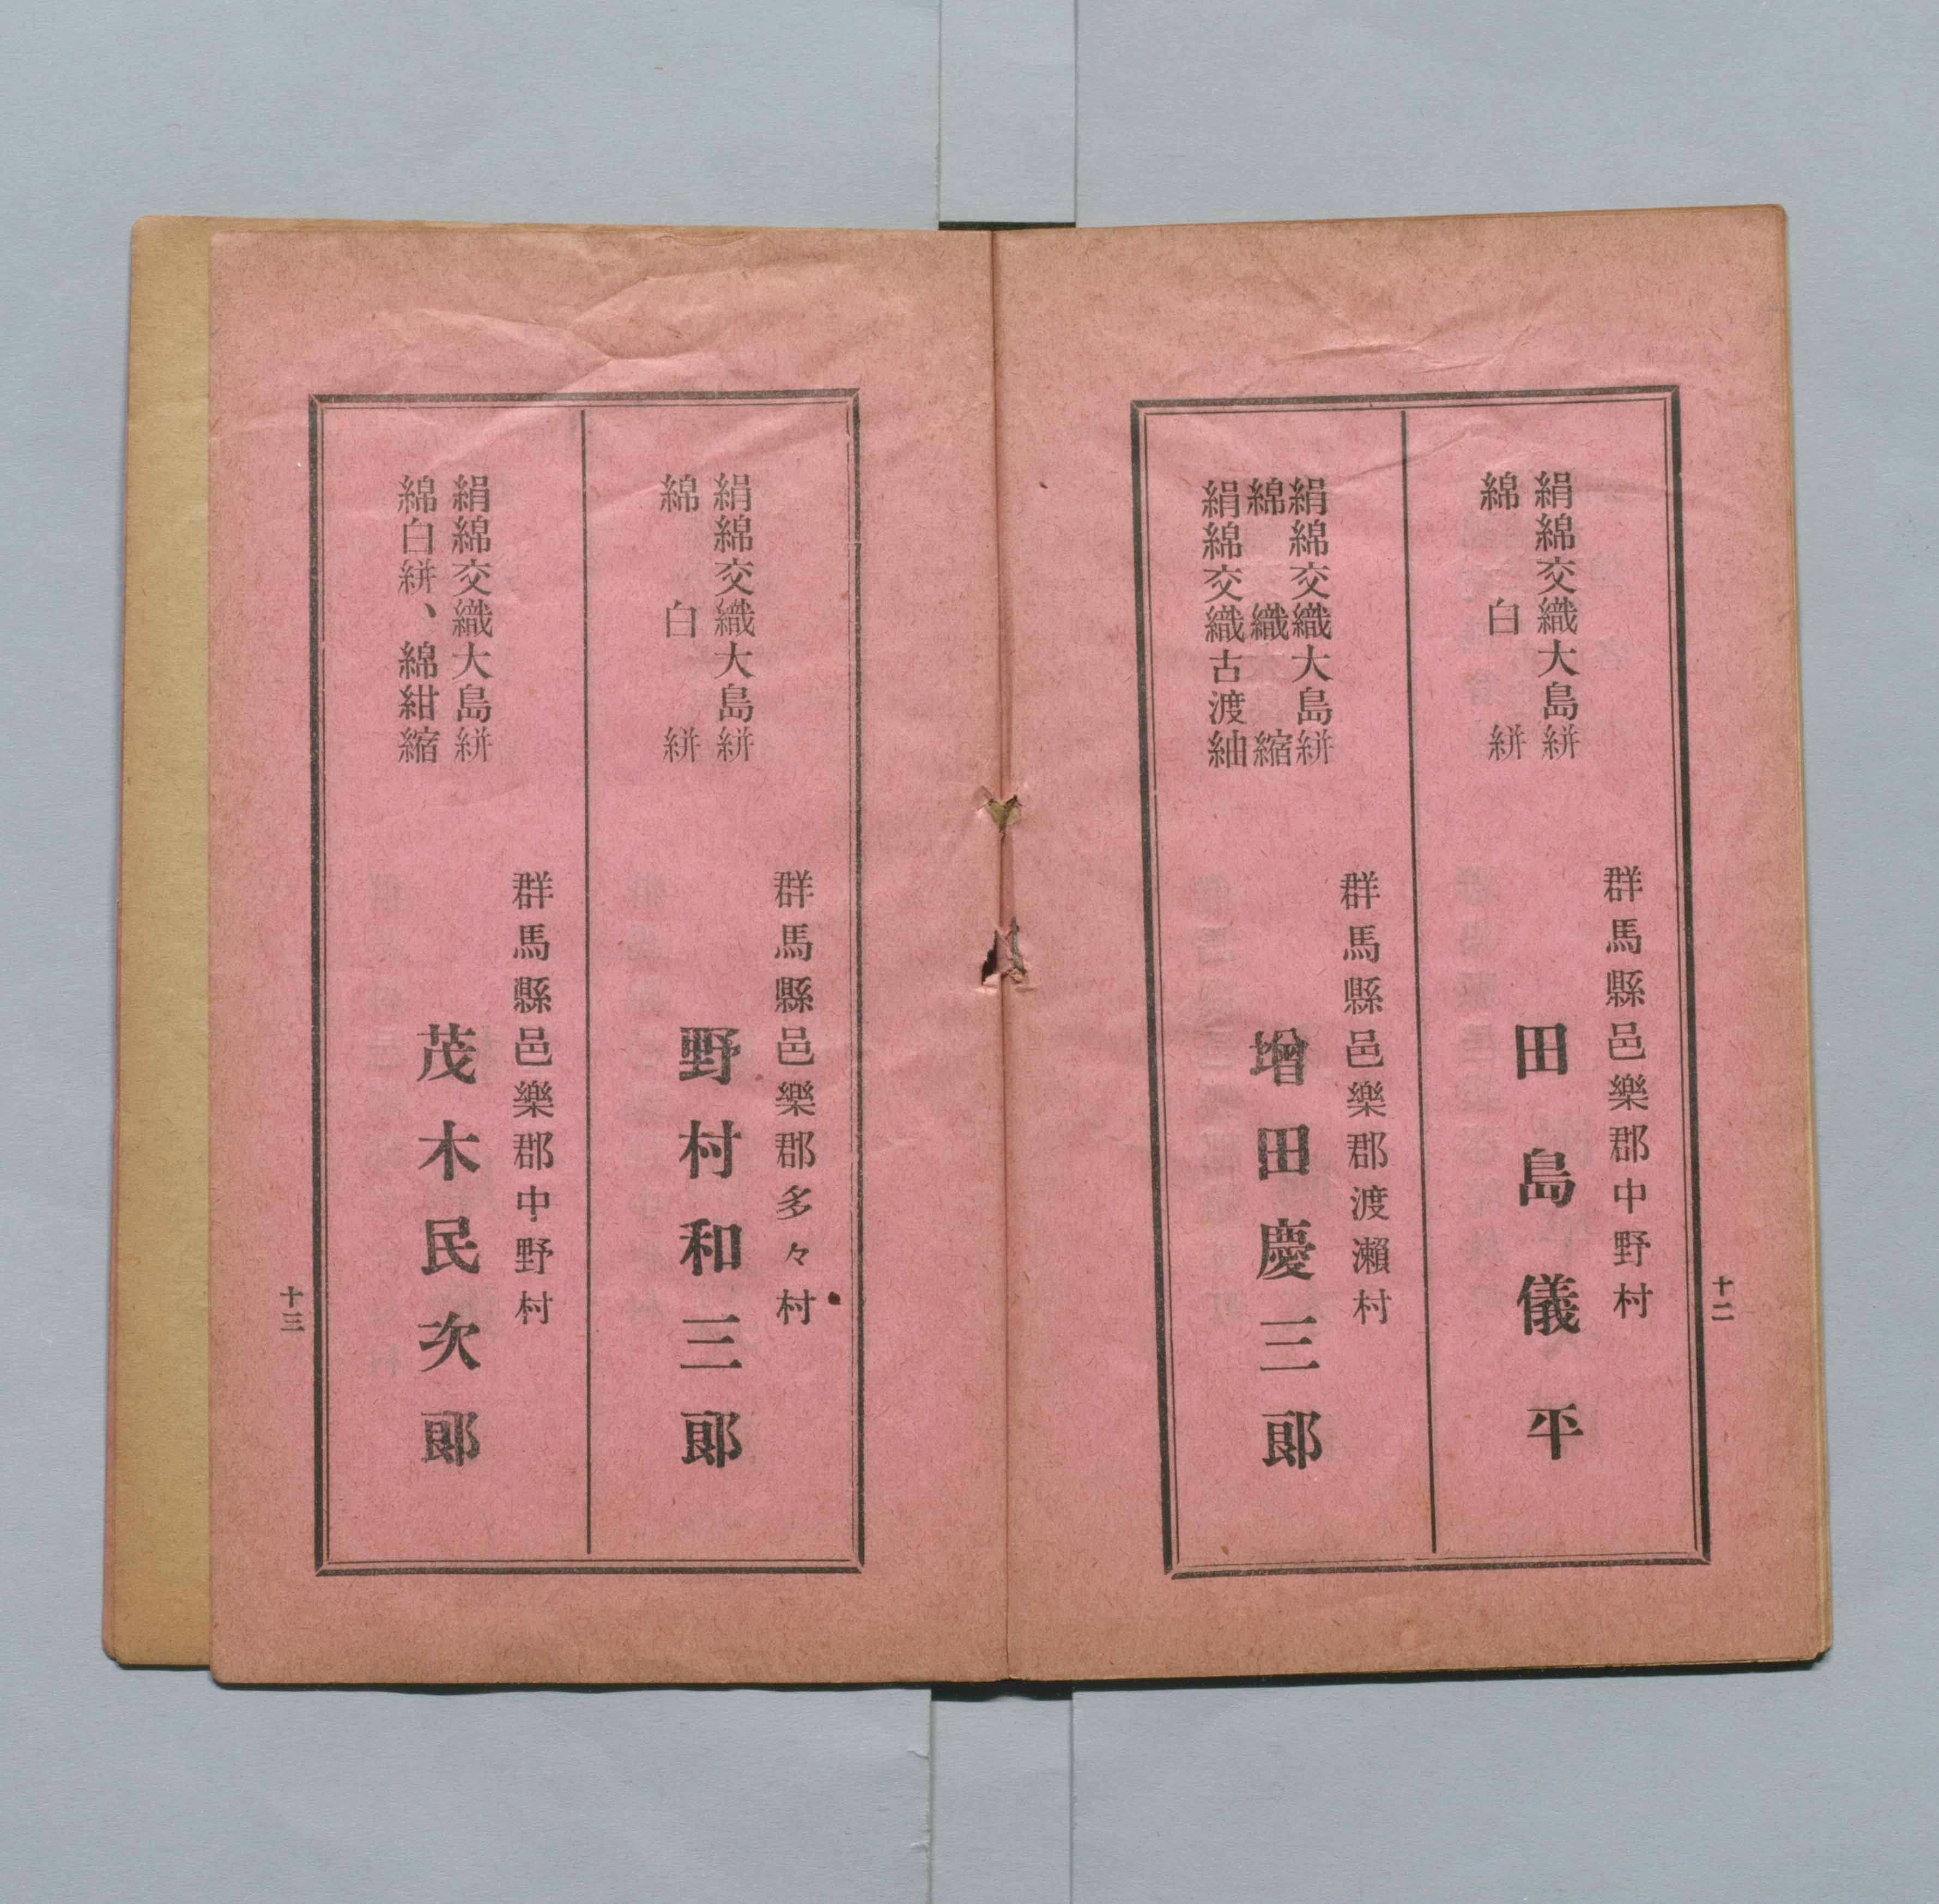 絹綿交織大島絣
綿白絣
群馬縣邑樂郡中野村
田島儀平
絹綿交織大島絣
綿織縮
絹綿交織古渡紬
群馬縣邑樂郡渡瀨村
增田慶三郞
十二
絹綿交織大島絣
綿白絣
群馬縣邑樂郡多々村
野村和三郞
絹綿交織大島絣
綿白絣、綿紺縮
群馬縣邑樂郡中野村
茂木民次郞
十三